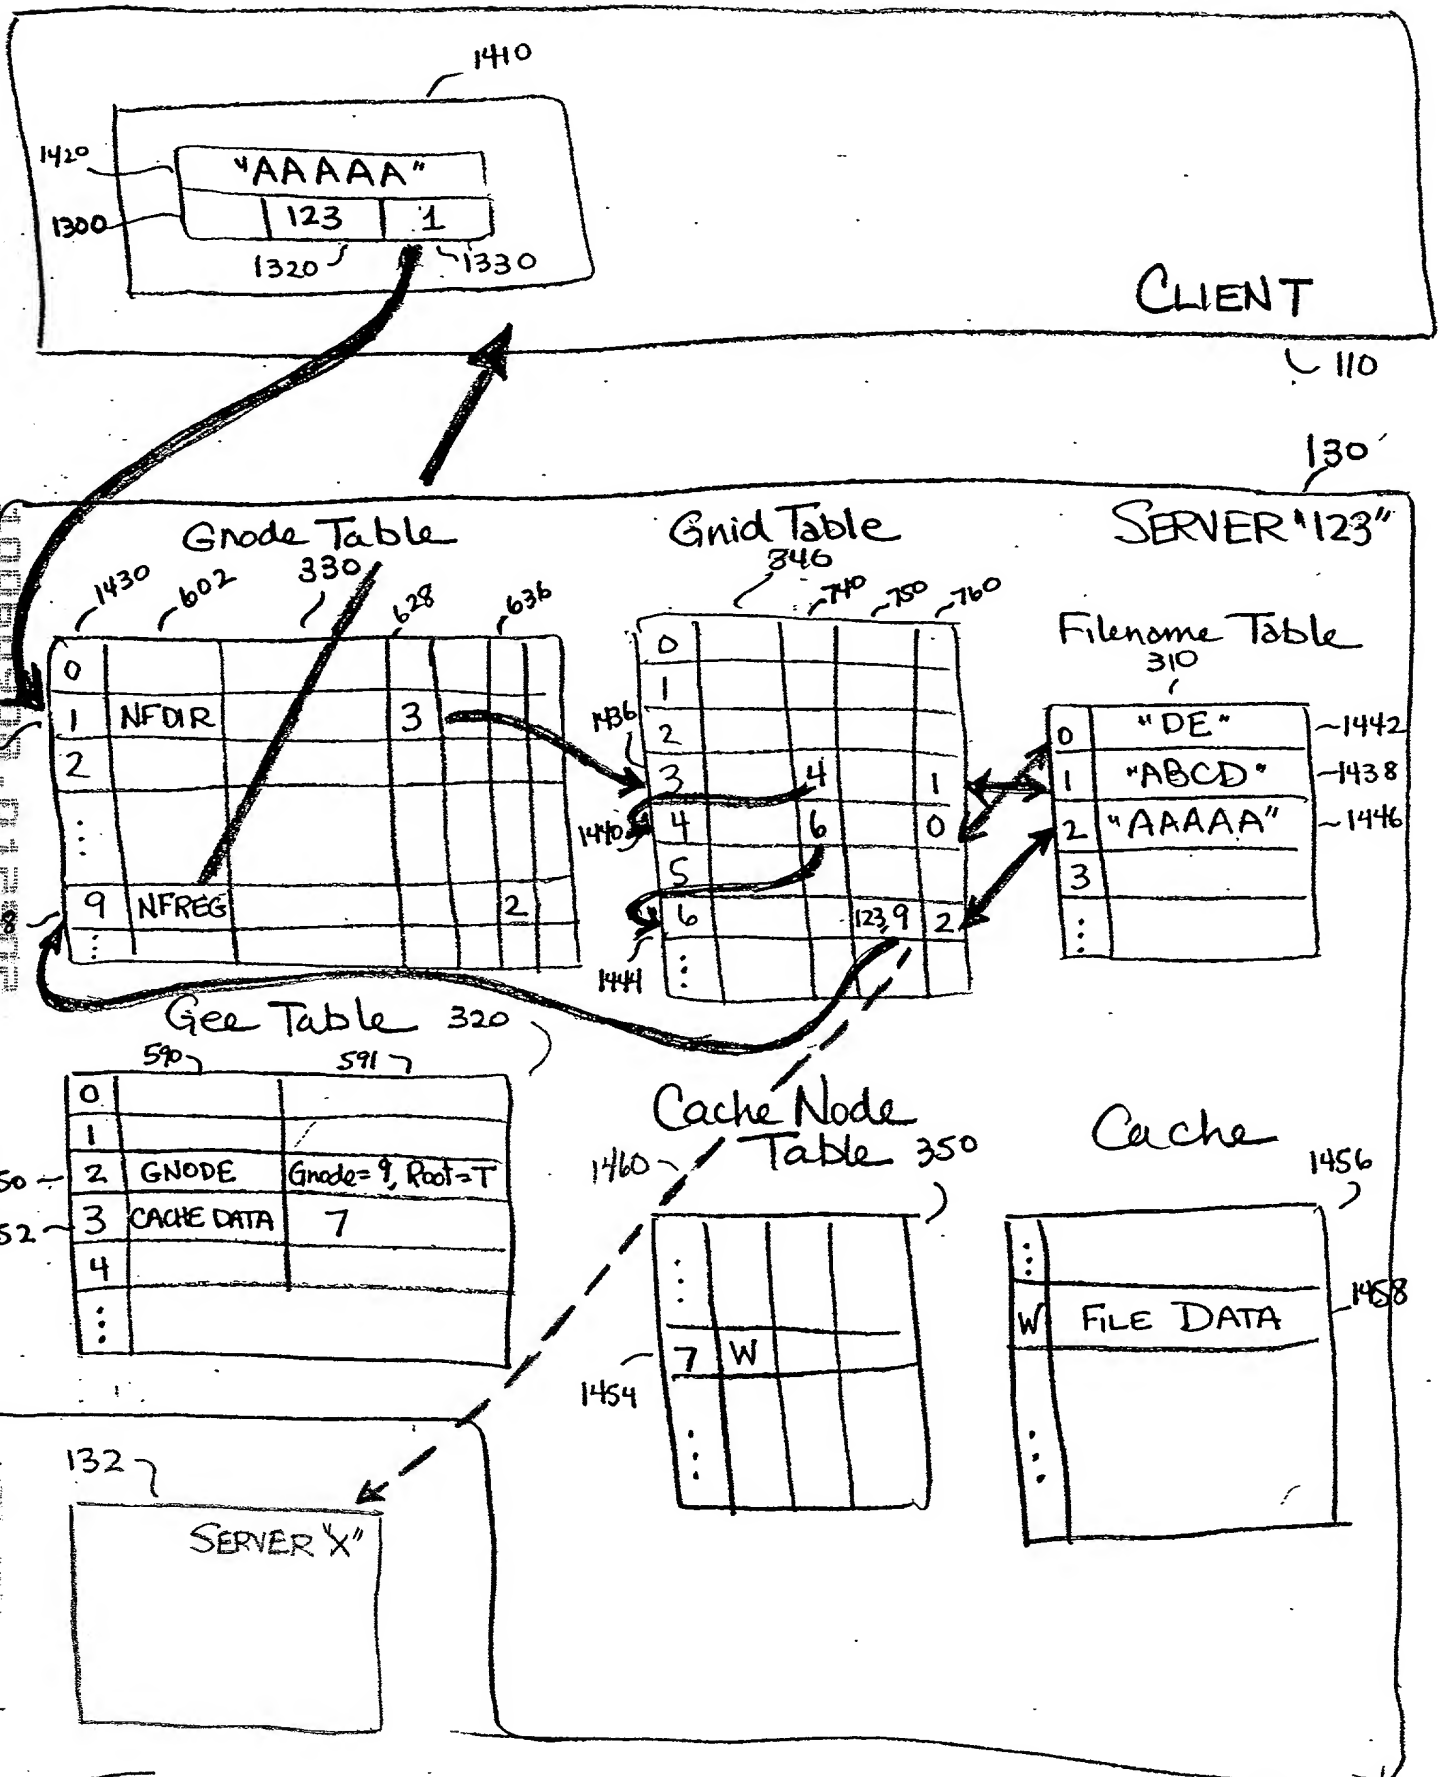 1410
1420
"AAAAA"
1300
123 1
1320 1330
CLIENT
110
130
SERVER "123"
Gnode Table
330
1430 602 628 636
0
1 NFDIR 3
2
⋮
9 NFREG 2
⋮
Gnid Table
346
740 750 760
0
1
1436
2
3 4 1
1440
4 6 0
5
6 123,9 2
1444
⋮
Filename Table
310
0 "DE" 1442
1 "ABCD" 1438
2 "AAAAA" 1446
3
⋮
Gee Table 320
590 591
0
1
2 GNODE Gnode=9, Root=T
3 CACHE DATA 7
4
⋮
Cache Node
Table 350
1460
⋮
7 W
1454
⋮
Cache
1456
⋮
W FILE DATA 1458
⋮
132
SERVER "X"